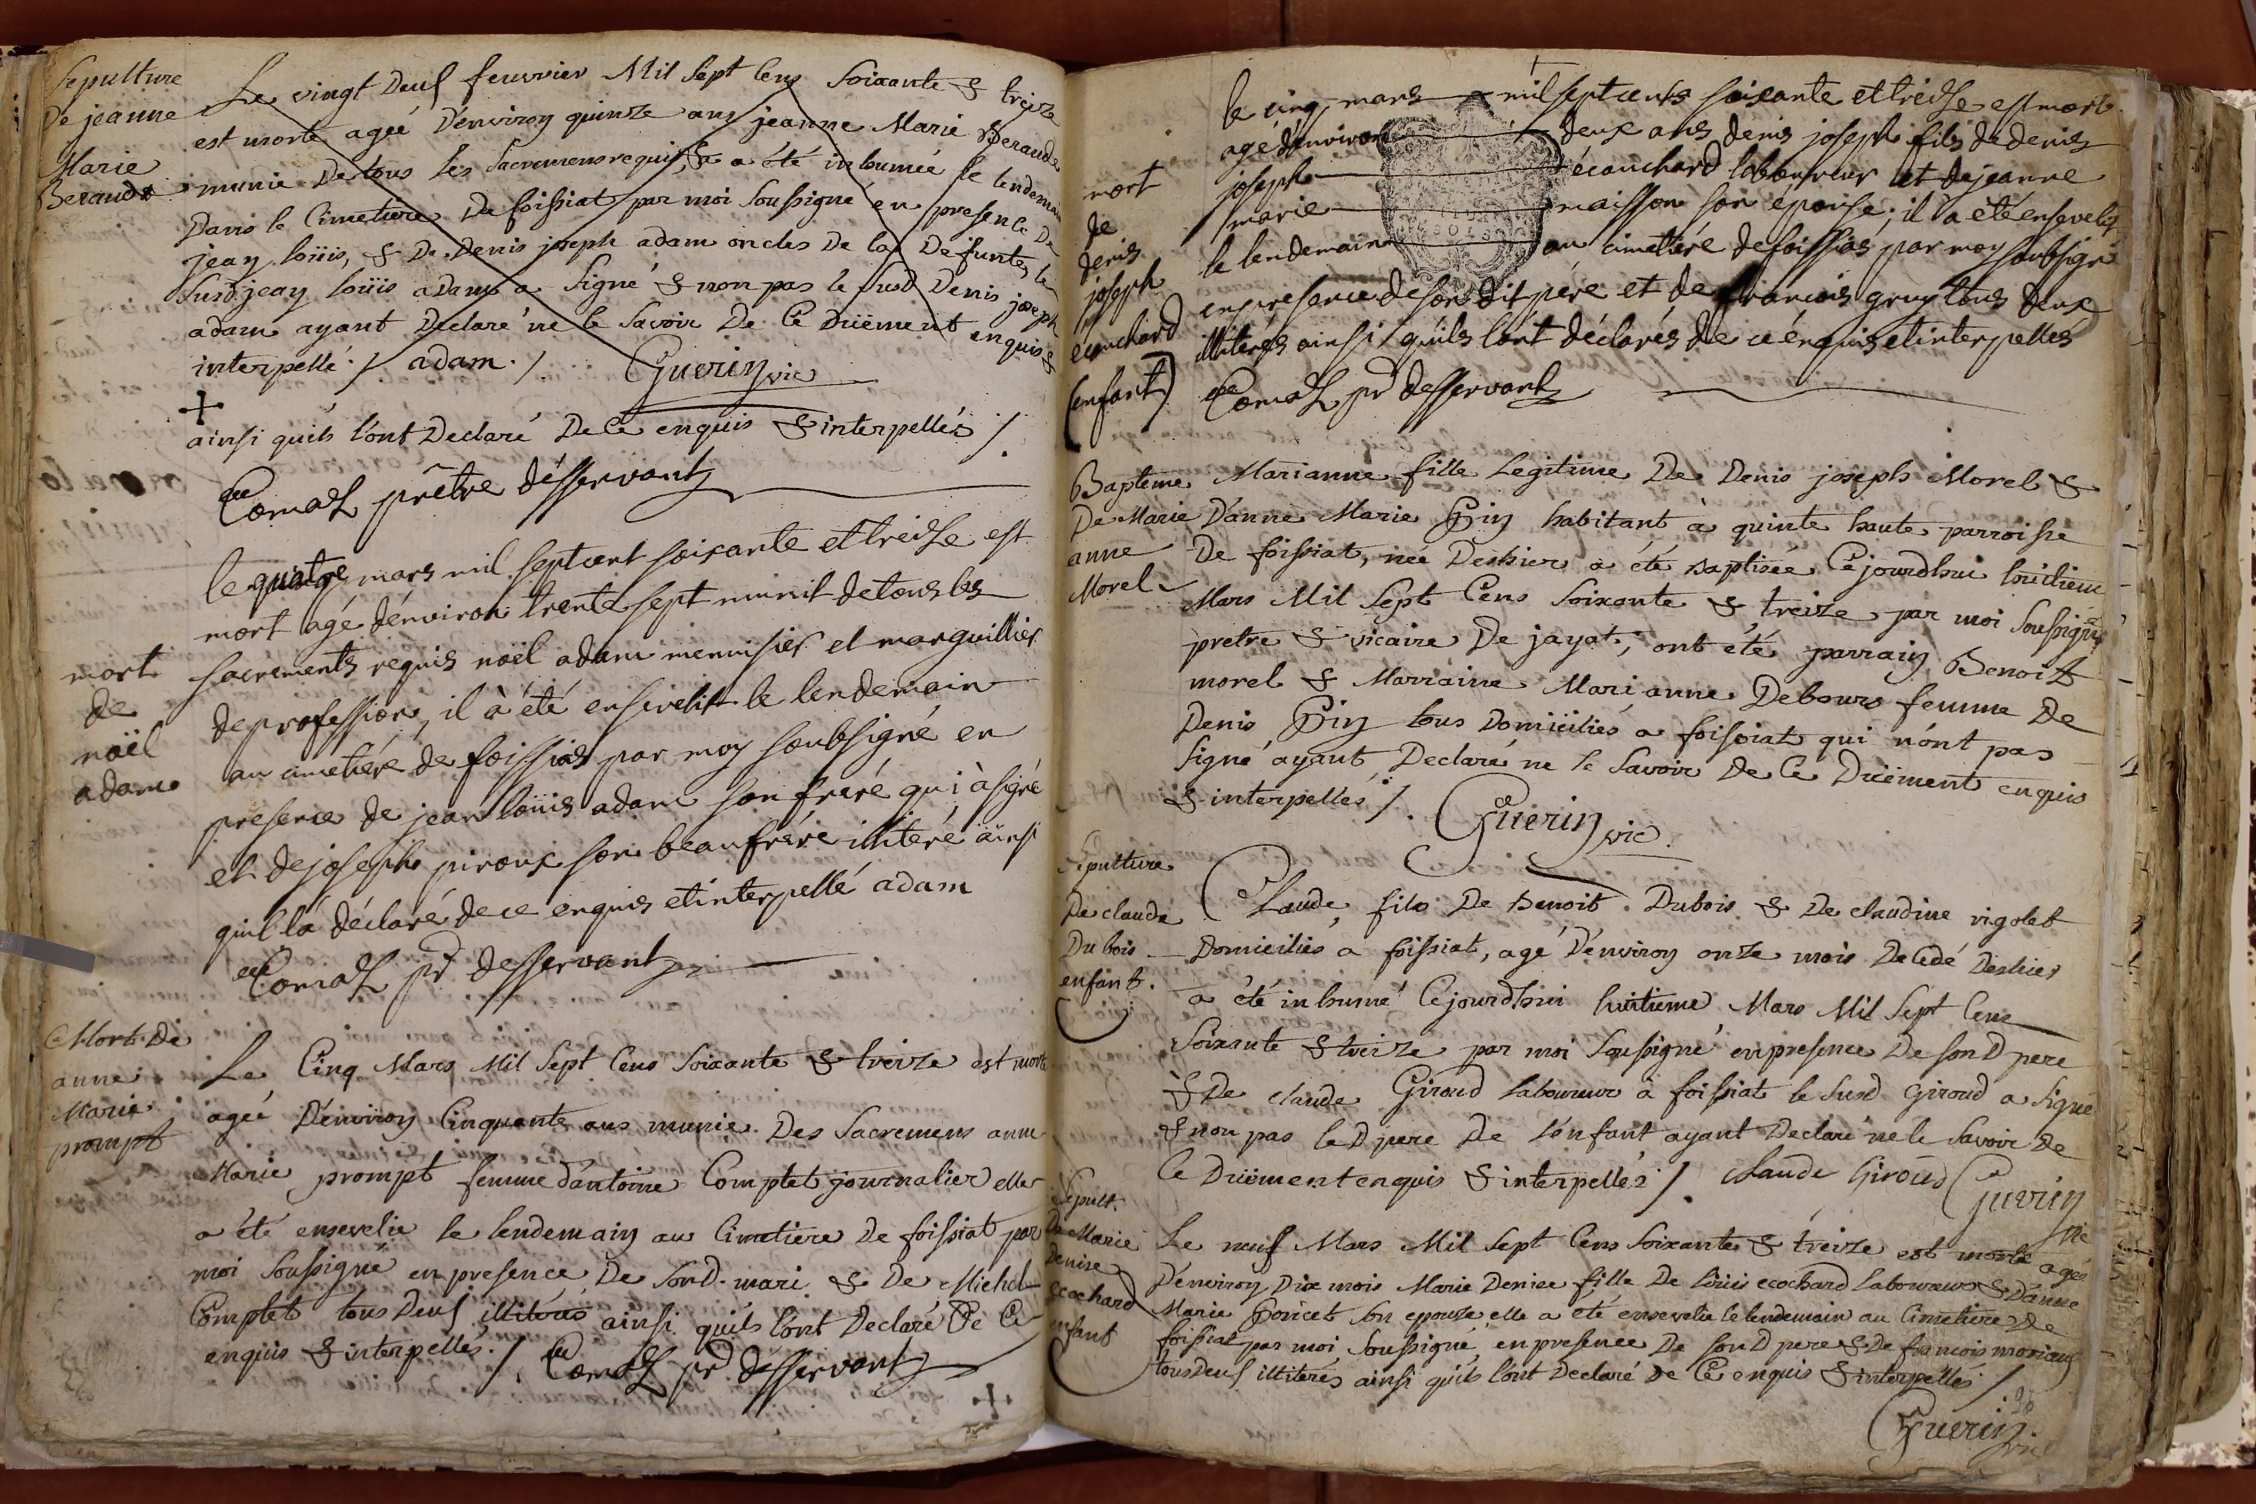 Sepulture
De jeanne
Marie
Beraudr
Le vingt Deus feuvrier Mil Sept Cens Soixante & treize
est morte agée D'environ quinze ans jeanne Marie Beraude
munie De tous les Sacremens requis, & a été inhumée le lendemain
Dans le Cimetiere De foissiat par moi Soussigné en presence De
jean loüis, & De Denis joseph adam oncles De la Defunte, le
Susd. jean loüis adam a Signé & non pas le Susd Denis joseph
adam ayant Declaré ne le Savoir De Ce Düement enquis &
interpellé ./ adam ./ Guerin vic
+
ainsi quils l'ont Declaré De Ce enquis & interpellés /.
prêtre désservant
mort
de
noël
adam
le quatre mars mil sept cent soixante et treize est
mort agé d'énviron trente sept munit de tous les
sacrements requis noël adam menuisier et marguillier
de profession, il à été ensevelit le lendemain
au cimetiére de foissias par moy soubsigné en
presence de jean loüis adam son frére qui à signé
et de joseph piroux son beaufrére illiteré ainsi
quil là déclaré de ce enquis et interpellé adam
pr desservant
Mort De
anne
Marie
prompt
Le Cinq Mars Mil Sept Cens Soixante & treize est morte
agée D'environ Cinquante ans munie Des Sacremens anne
Marie prompt femme d'antoine Comptet journalier elle
a été ensevelie le lendemain au Cimetiere De foissiat par
moi Soussigné en presence De Son D. mari & De Michel
Comptet tous Deus illiterés ainsi quils l'ont Declaré De Ce
enquis & interpellés ./. pr désservant
+
mort
de
denis
joseph
écouchard
(enfant)
le cinq mars mil sept cents soixante et treidse est mort
agé d'énviron deux ans denis joseph fils de denis
joseph écouchard laboureur et de jeanne
marie maisson son épouse; il à été ensevely
le lendemain au cimetiére de foissias, par moy soubsigné
en presence de son dit pére et de francois gruy tous deux
illiterés ainsi quils l'ont déclarés de ce énquis et interpellés
pr desservant
Bapteme
De Marie
anne
Morel
Marianne fille Legitime De Denis joseph Morel &
D'anne Marie Pin habitant à quinte haute parroisse
De foissiat, née Deshier a été Baptisée Cejourdhui huitieme
Mars Mil Sept Cens Soixante & treize par moi Soussigné
pretre & vicaire De jayat; ont été parrain Benoit
morel & Marraine Marianne Debours femme De
Denis Pin tous Domiciliés a foissiat qui n'ont pas
Signé ayant Declaré ne le Savoir De Ce Düement enquis
& interpellés ./. Guerin vic.
Sepulture
De claude
Du bois
enfant.
Claude, fils De Benoit Dubois & De claudine rigolet
Domiciliés a foissiat, agé D'environ onze mois Decedé Deshier
a été inhumé Cejourdhui huitieme Mars Mil Sept Cens
Soixante & treize par moi Soussigné en presence De Son D pere
& De claude Giroud laboureur à foissiat le Susd Giroud a Signé
& non pas le D pere De l'énfant ayant Declaré ne le Savoir De
Ce Düement enquis & interpellés /. claude Giroud Guerin
vic
Sepult.
De Marie
Denise
Ecochard
enfant
Le neuf Mars Mil Sept Cens Soixante & treize est morte agée
D'environ Dix mois Marie Denise fille De loüis ecochard laboureur & D'anne
Marie Poncet Son epouse elle a été ensevelie le lendemain au Cimetiere De
foissiat par moi Soussigné en presence De Son D pere & De francois
tous Deus illiterés ainsi quils l'ont Declaré De Ce enquis & interpellés /.
Guerin vic